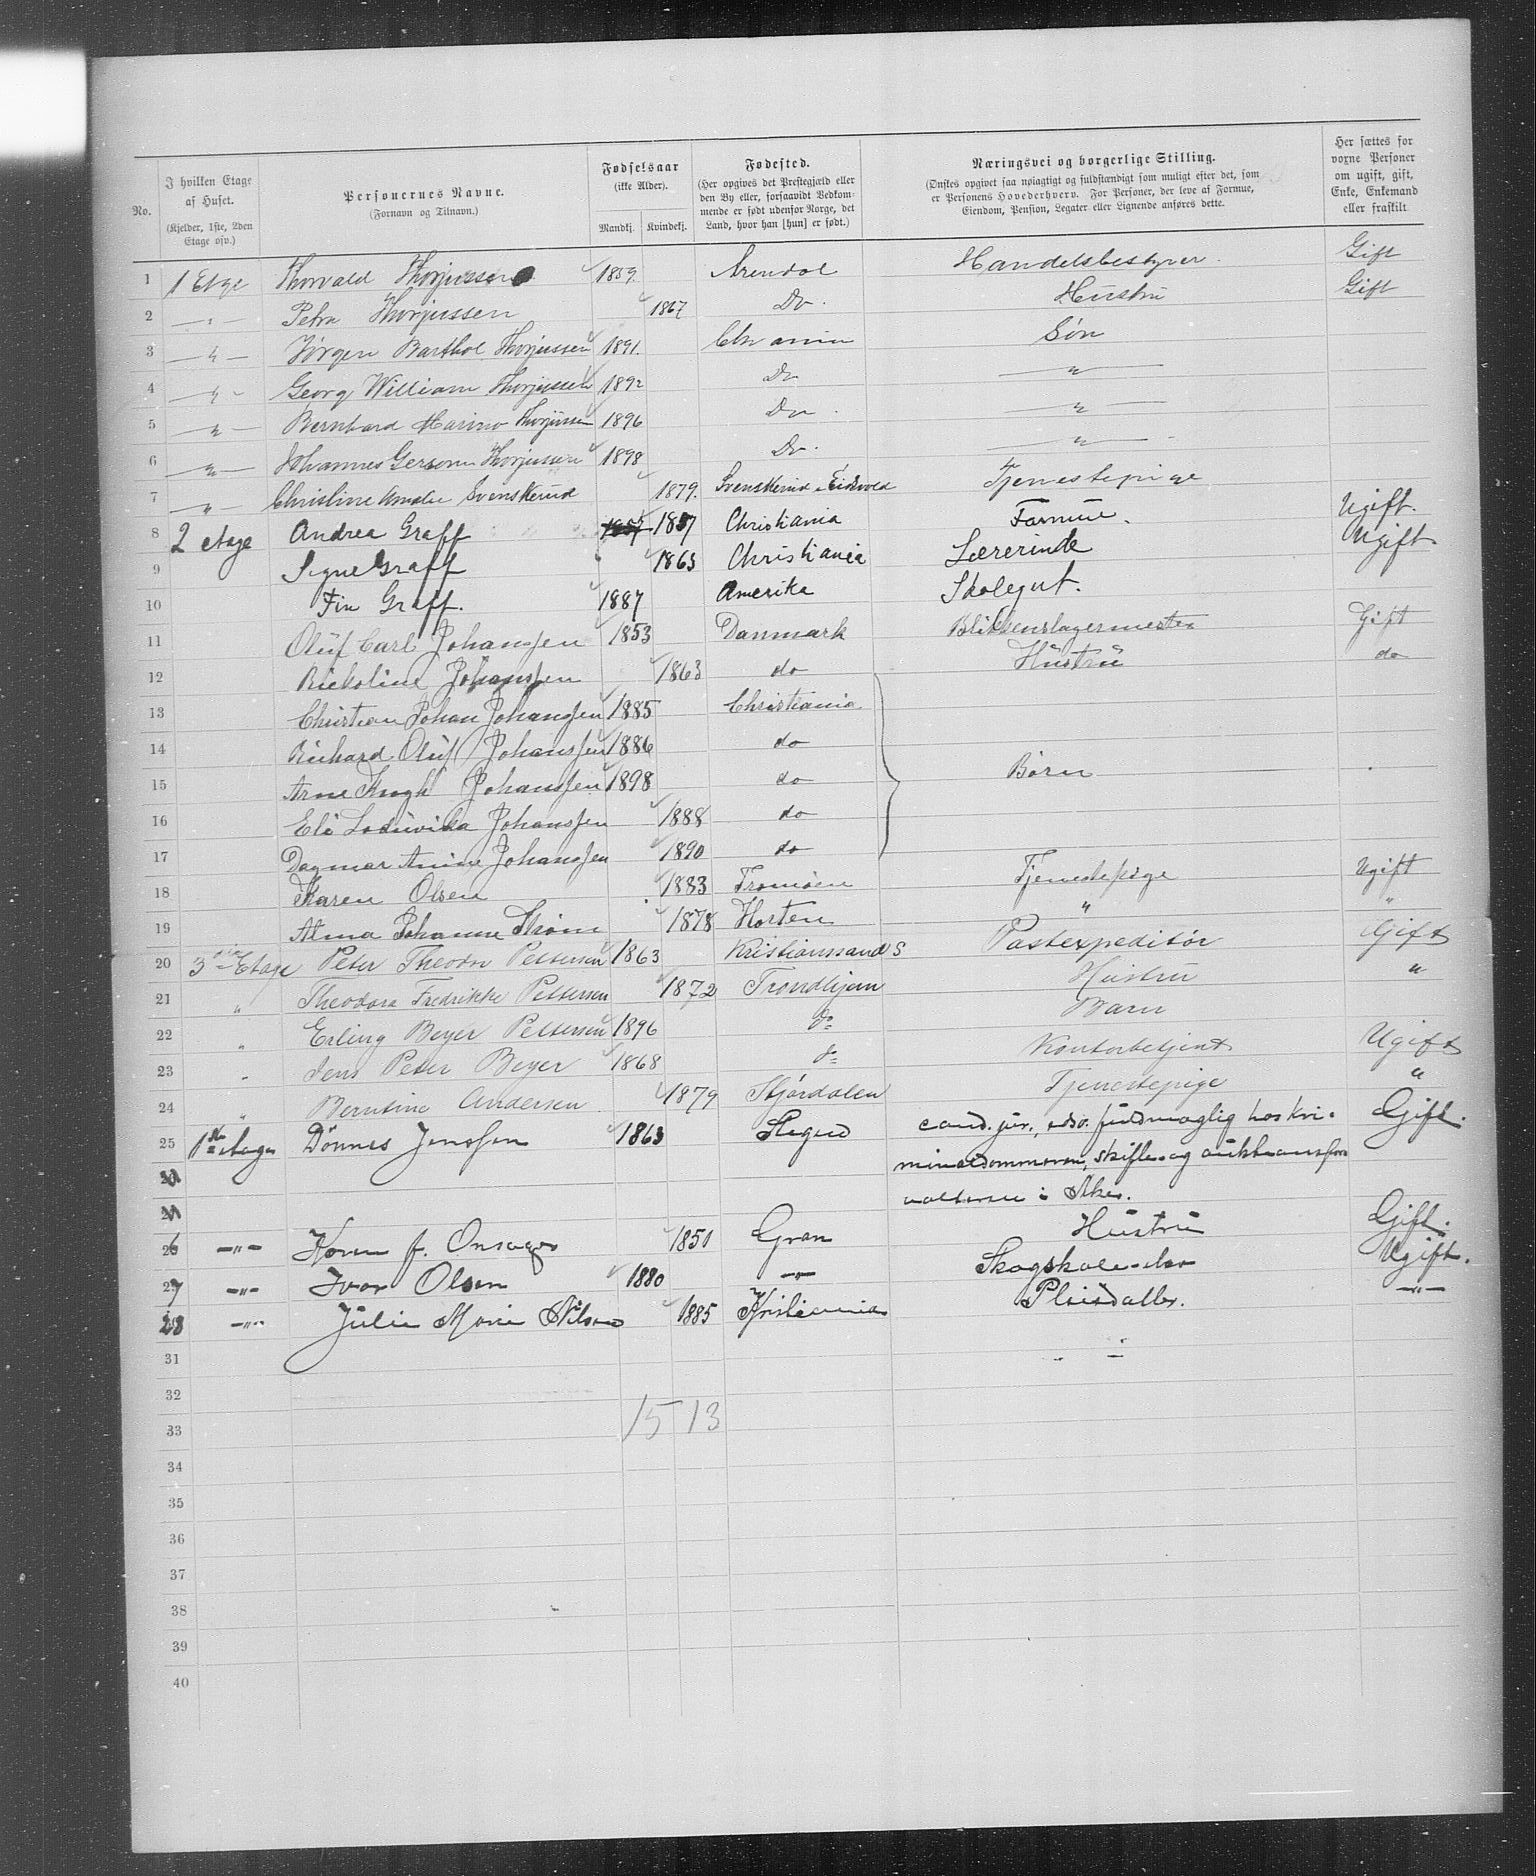 No.
I hvilken Etage af Huset. (Kjelder, 1ste, 2den Etage osv.)
Personernes Navne. (Fornavn og Tilnavn.)
Fødselsaar (ikke Alder). Mandkj. Kvindekj.
Fødested. (Her opgives det Prestegjæld eller den By eller, forsaavidt Vedkommende er født udenfor Norge, det Land, hvor han [hun] er født.)
Næringsvei og borgerlige Stilling. (Ønskes opgivet saa nøiagtigt og fuldstændigt som muligt efter det, som er Personens Hovederhverv. For Personer, der leve af Formue, Eiendom, Pension, Legater eller Lignende anføres dette.
Her sættes for voxne Personer om ugift, gift, Enke, Enkemand eller fraskilt
1 1 Etage Thorvald Thorjussen 1859. Arendal Handelsbestyrer. Gift
2 — " — Petra Thorjussen 1867 Do. Hustru Gift
3 — " — Jørgen Barthol Thorjussen 1891. Chr ania Søn
4 — " — Georg William Thorjussen 1892 Do — " —
5 — " — Bernhard Marino Thorjussen 1896 Do. — " —
6 — " — Johannes Gerson Thorjussen 1898 Do. — " —
7 — " — Christine Amalie Svenskerud 1879. Svenskerud Eidsvold Tjenestepige
8 2 etage Andrea Graff 1857 1857 Christiania Formue. Ugift.
9 Signe Graff 1863 Christiania Lærerinde Ugift
10 Fin Graff. 1887 Amerika Skolegut.
11 Oluf Carl Johanssen 1853 Danmark Blikkenslagermester Gift
12 Rickoline Johanssen 1863 do Hustru do
13 Christian Johan Johanssen 1885 Christiania
14 Richard Oluf Johanssen 1886 do
15 Arne Krogh Johanssen 1898 do Børn
16 Eli Lodovika Johanssen 1888 do
17 Dagmar Anine Johanssen 1890 do
18 Karen Olsen 1883 Tromøen Tjenestepige Ugift
19 Alma Johanne Strøm 1878 Horten " "
20 3die Etage Peter Theodor Pettersen 1863 Kristianssand S Postexpeditør Gift
21 " Theodora Fredrikke Pettersen 1872 Trondhjem Hustru "
22 " Erling Beyer Pettersen 1896 do Barn
23 " Jens Peter Beyer 1868 do Kontorbetjent Ugift
24 " Berntine Andersen 1879 Stjørdalen Tjenestepige "
25 1ste etage Dönnes Jenssen 1863 Stegud cand. jur., edsv. fuldmægtig hos kri- Gift.
minaldommeren, skifte- og auktionsfor
valteren i Aker.
26 — " — Karen f. Onsager 1850 Gran Hustru Gift.
27 — " — Ivar Olsen 1880 — " — Skogskole-elev Ugift.
28 — " — Julie Marie Nilsen 1885 Kristiania Pleiedatter. — " —
31
32
33 15 13
34
35
36
37
38
39
40